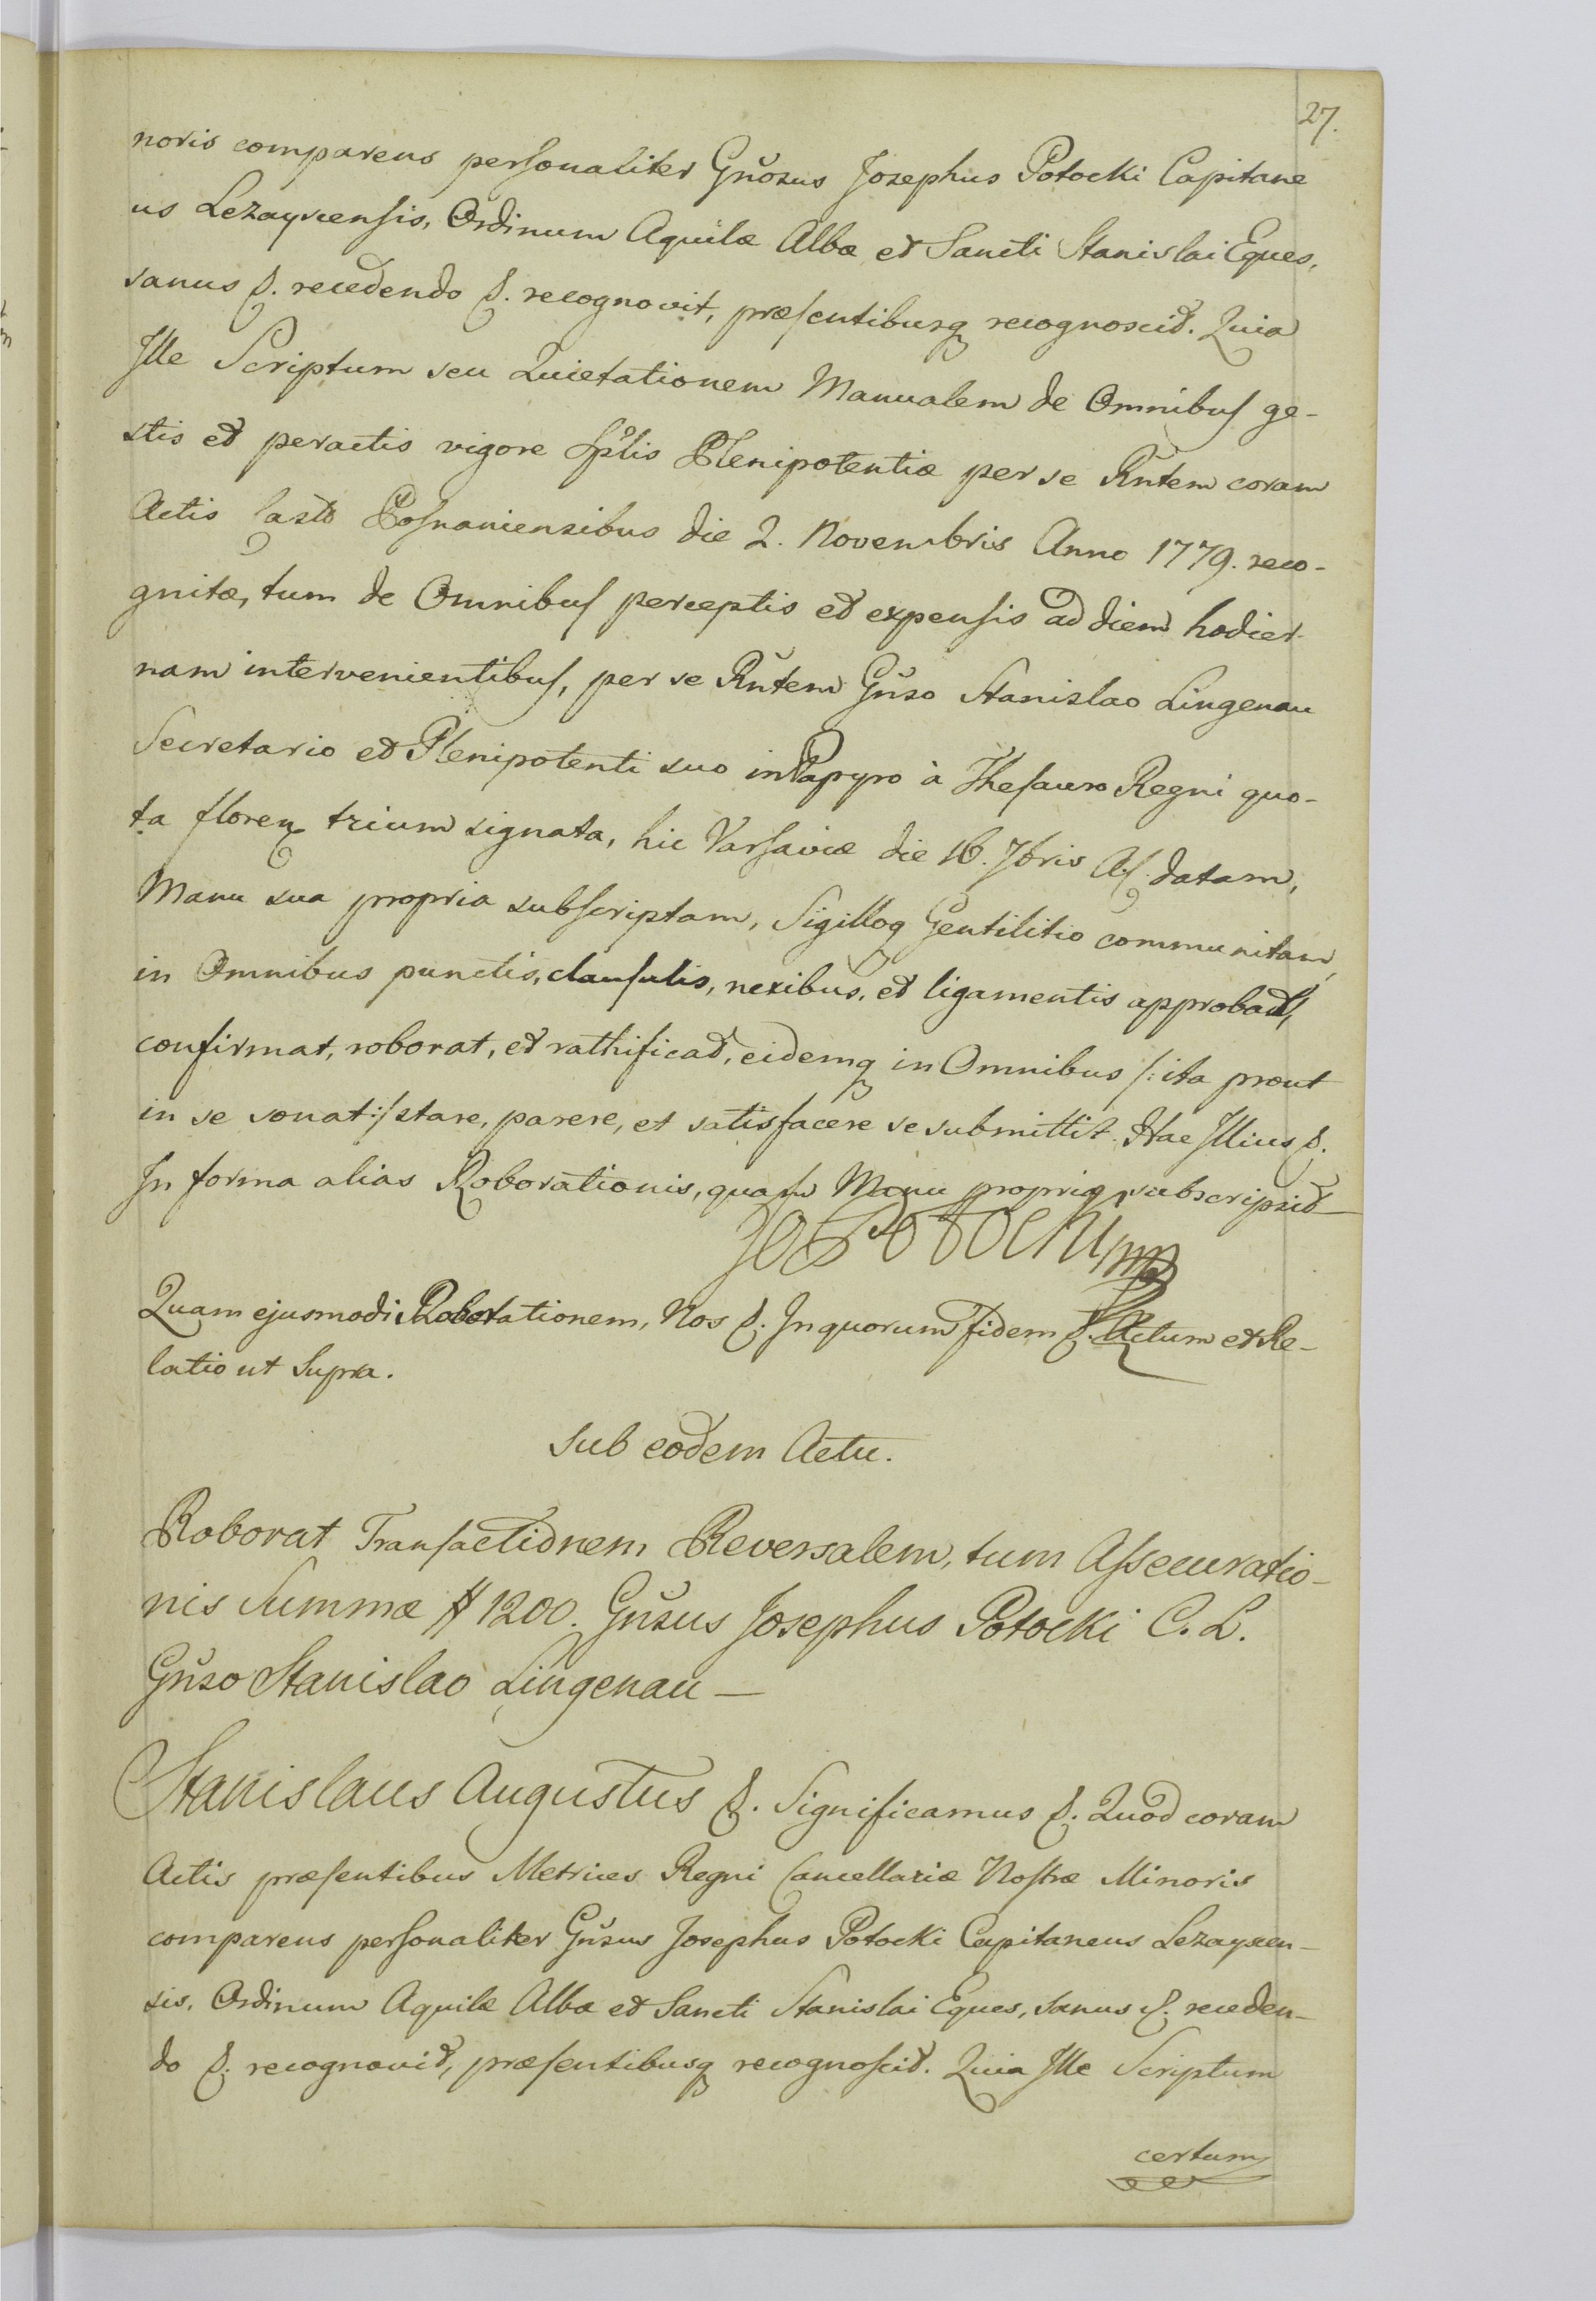 27.
noris comparens personaliter Gnŏsus Josephus Potocki Capitane
us Lezayscensis, Ordinum Aquilæ Albæ et Sancti Stanislai Eques,
sanus &. recedendo &. recognovit, præsentibusq recognoscit. Quia
Ille Scriptum seu Quietationem Manualem de Omnibus ge-
stis et peractis vigore Splis Plenipotentiæ per se Rñtem coram
Actis Castr Posnaniensibus die 2. Novembris Anno 1779. reco-
gnitæ, tum de Omnibus perceptis et expensis ad diem hodier-
nam intervenientibus, per se Rñtem Gñso Stanislao Lingenau
Secretario et Plenipotenti suo in Papyro à Thesauro Regni quo-
ta floren trium signata, hic Varsaviæ die 16. 7bris A. datam,
Manu sua propria subscriptam, Sigilloq Gentilitio communitam,
in Omnibus punctis, clausulis, nexibus, et ligamentis approbat,
confirmat, roborat, et rathificat, eidemq in Omnibus /: ita prout
in se sonat :/ stare, parere, et satisfacere se submittit. Hac Illius &.
In forma alias Roborationis, quam Manu propria subscripsit
Jos Potocki mp
Quam ejusmodi Roborationem, Nos &. In quorum fidem &. Actum et Re-
latio ut Supra.
Sub eodem Actu.
Roborat Transactionem Reversalem, tum Assecuratio-
nis Summæ # 1200. Gñsus Josephus Potocki C. L.
Gñso Stanislao Lingenau —
Stanislaus Augustus &. Significamus &. Quod coram
Actis præsentibus Metrices Regni Cancellariæ Nostræ Minoris
comparens personaliter Gñsus Josephus Potocki Capitaneus Lezayscen-
sis, Ordinum Aquilæ Albæ et Sancti Stanislai Eques, sanus &. receden-
do &. recognovit, præsentibusq recognoscit. Quia Ille Scriptum
certum